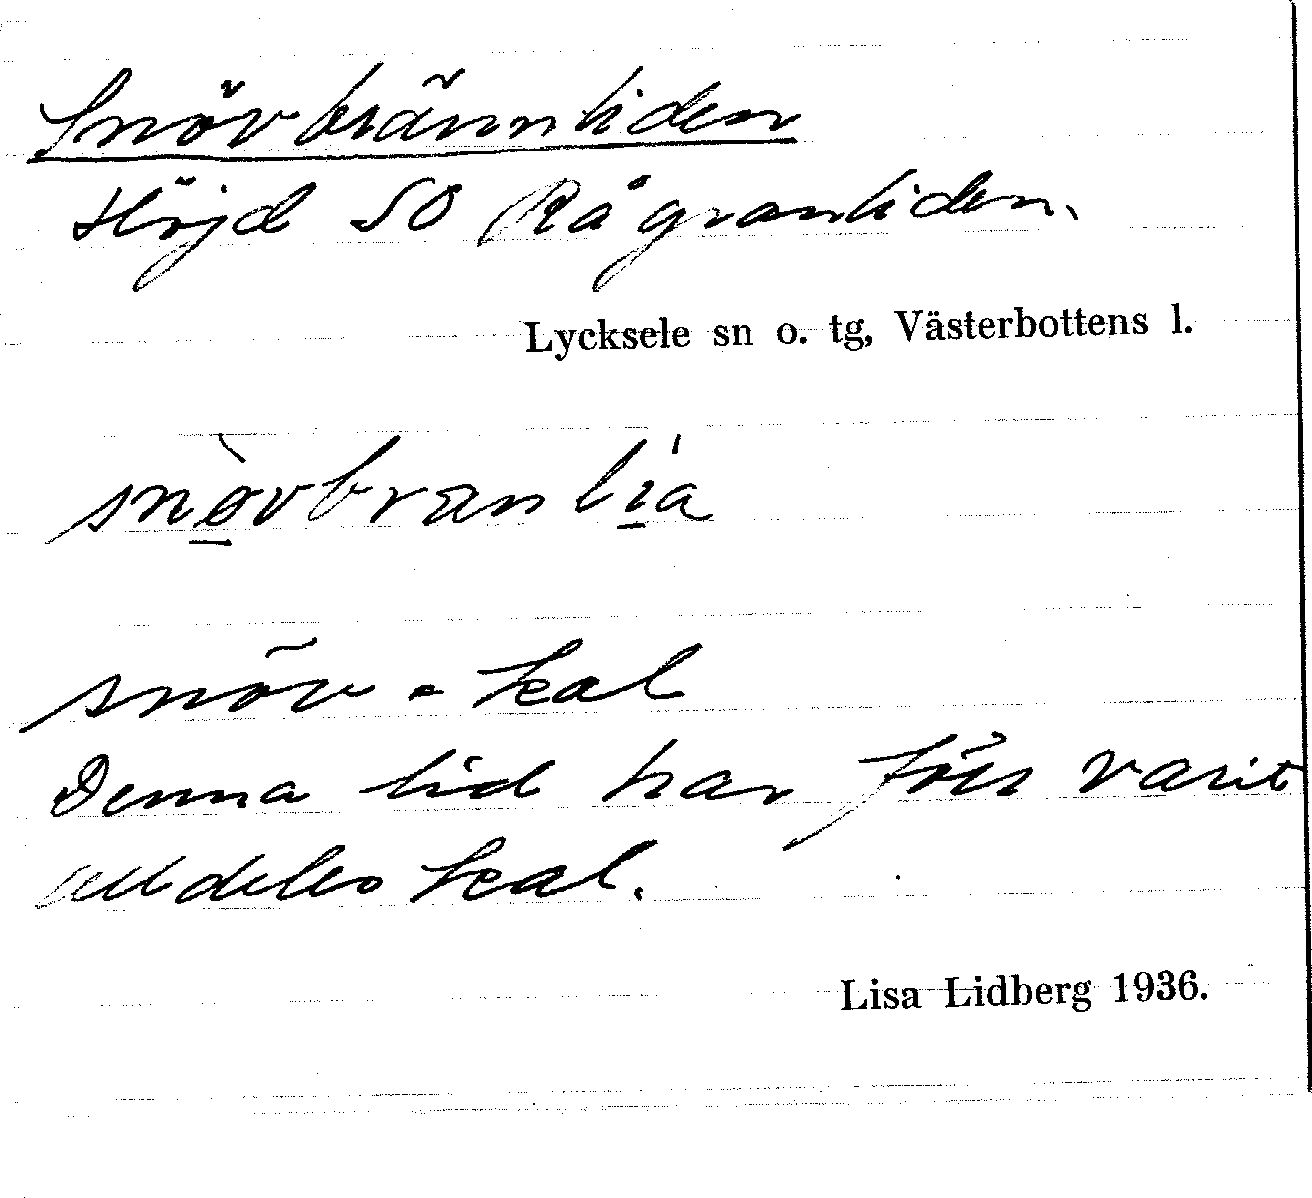 Snövbrännliden
Höjd SO Rågranliden.
Lycksele sn o. tg, Västerbottens l.
snø̀vbranlía
snöv = kal
Denna lid har förr varit
alldeles kal.
Lisa Lidberg 1936.